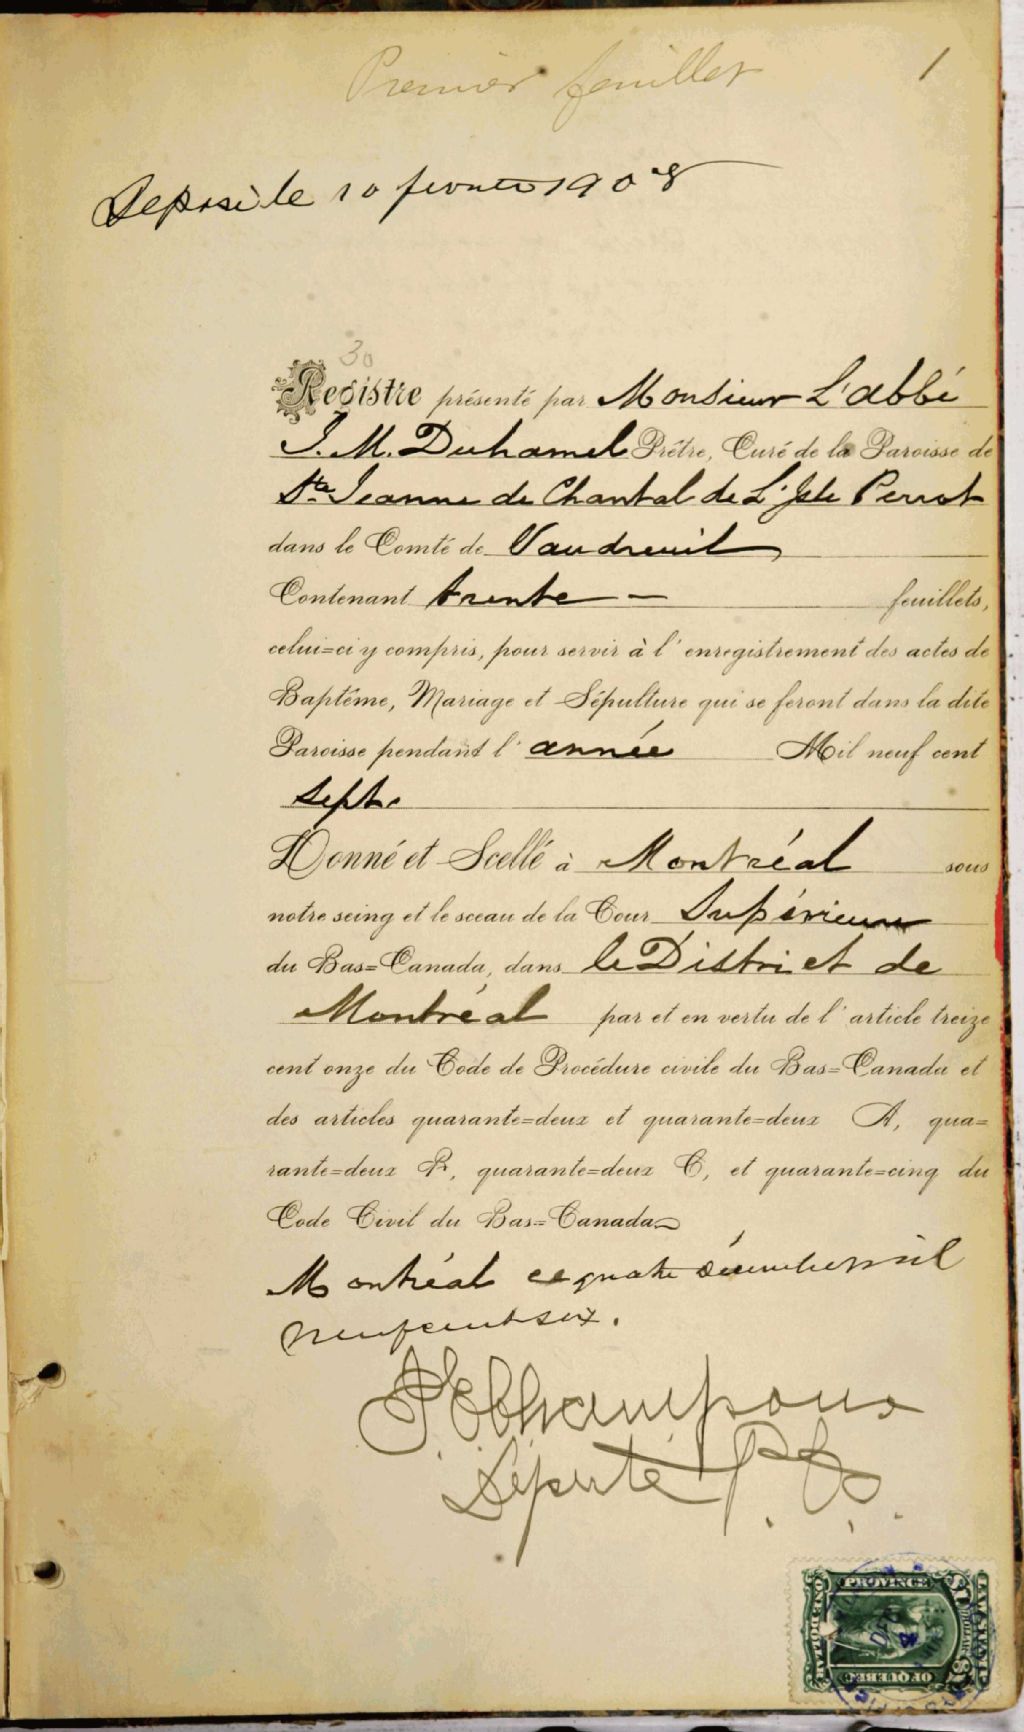 Premier feuillet 1
Déposé le 10 fevrier 1908
30
Registre présenté par Monsieur L'abbé
J. M. Duhamel Prêtre, Curé de la Paroisse de
Ste Jeanne de Chantal de L'Isle Perrot
dans le Comté de Vaudreuil
Contenant trente — feuillets,
celui=ci y compris, pour servir à l'enregistrement des actes de
Baptême, Mariage et Sépulture qui se feront dans la dite
Paroisse pendant l'année Mil neuf cent
sept.
Donné et Scellé à Montréal sous
notre seing et le sceau de la Cour Supérieure
du Bas=Canada, dans le District de
Montréal par et en vertu de l'article treize
cent onze du Code de Procédure civile du Bas=Canada et
des articles quarante=deux et quarante=deux A, qua=
rante=deux B, quarante=deux C, et quarante=cinq du
Code Civil du Bas=Canada
Montréal ce quatre décembre mil
neuf cent six.
Champoux
Député P.
PROVINCE
OF QUEBEC
ONE DOLLAR
LAW STAMP
$1
DEC